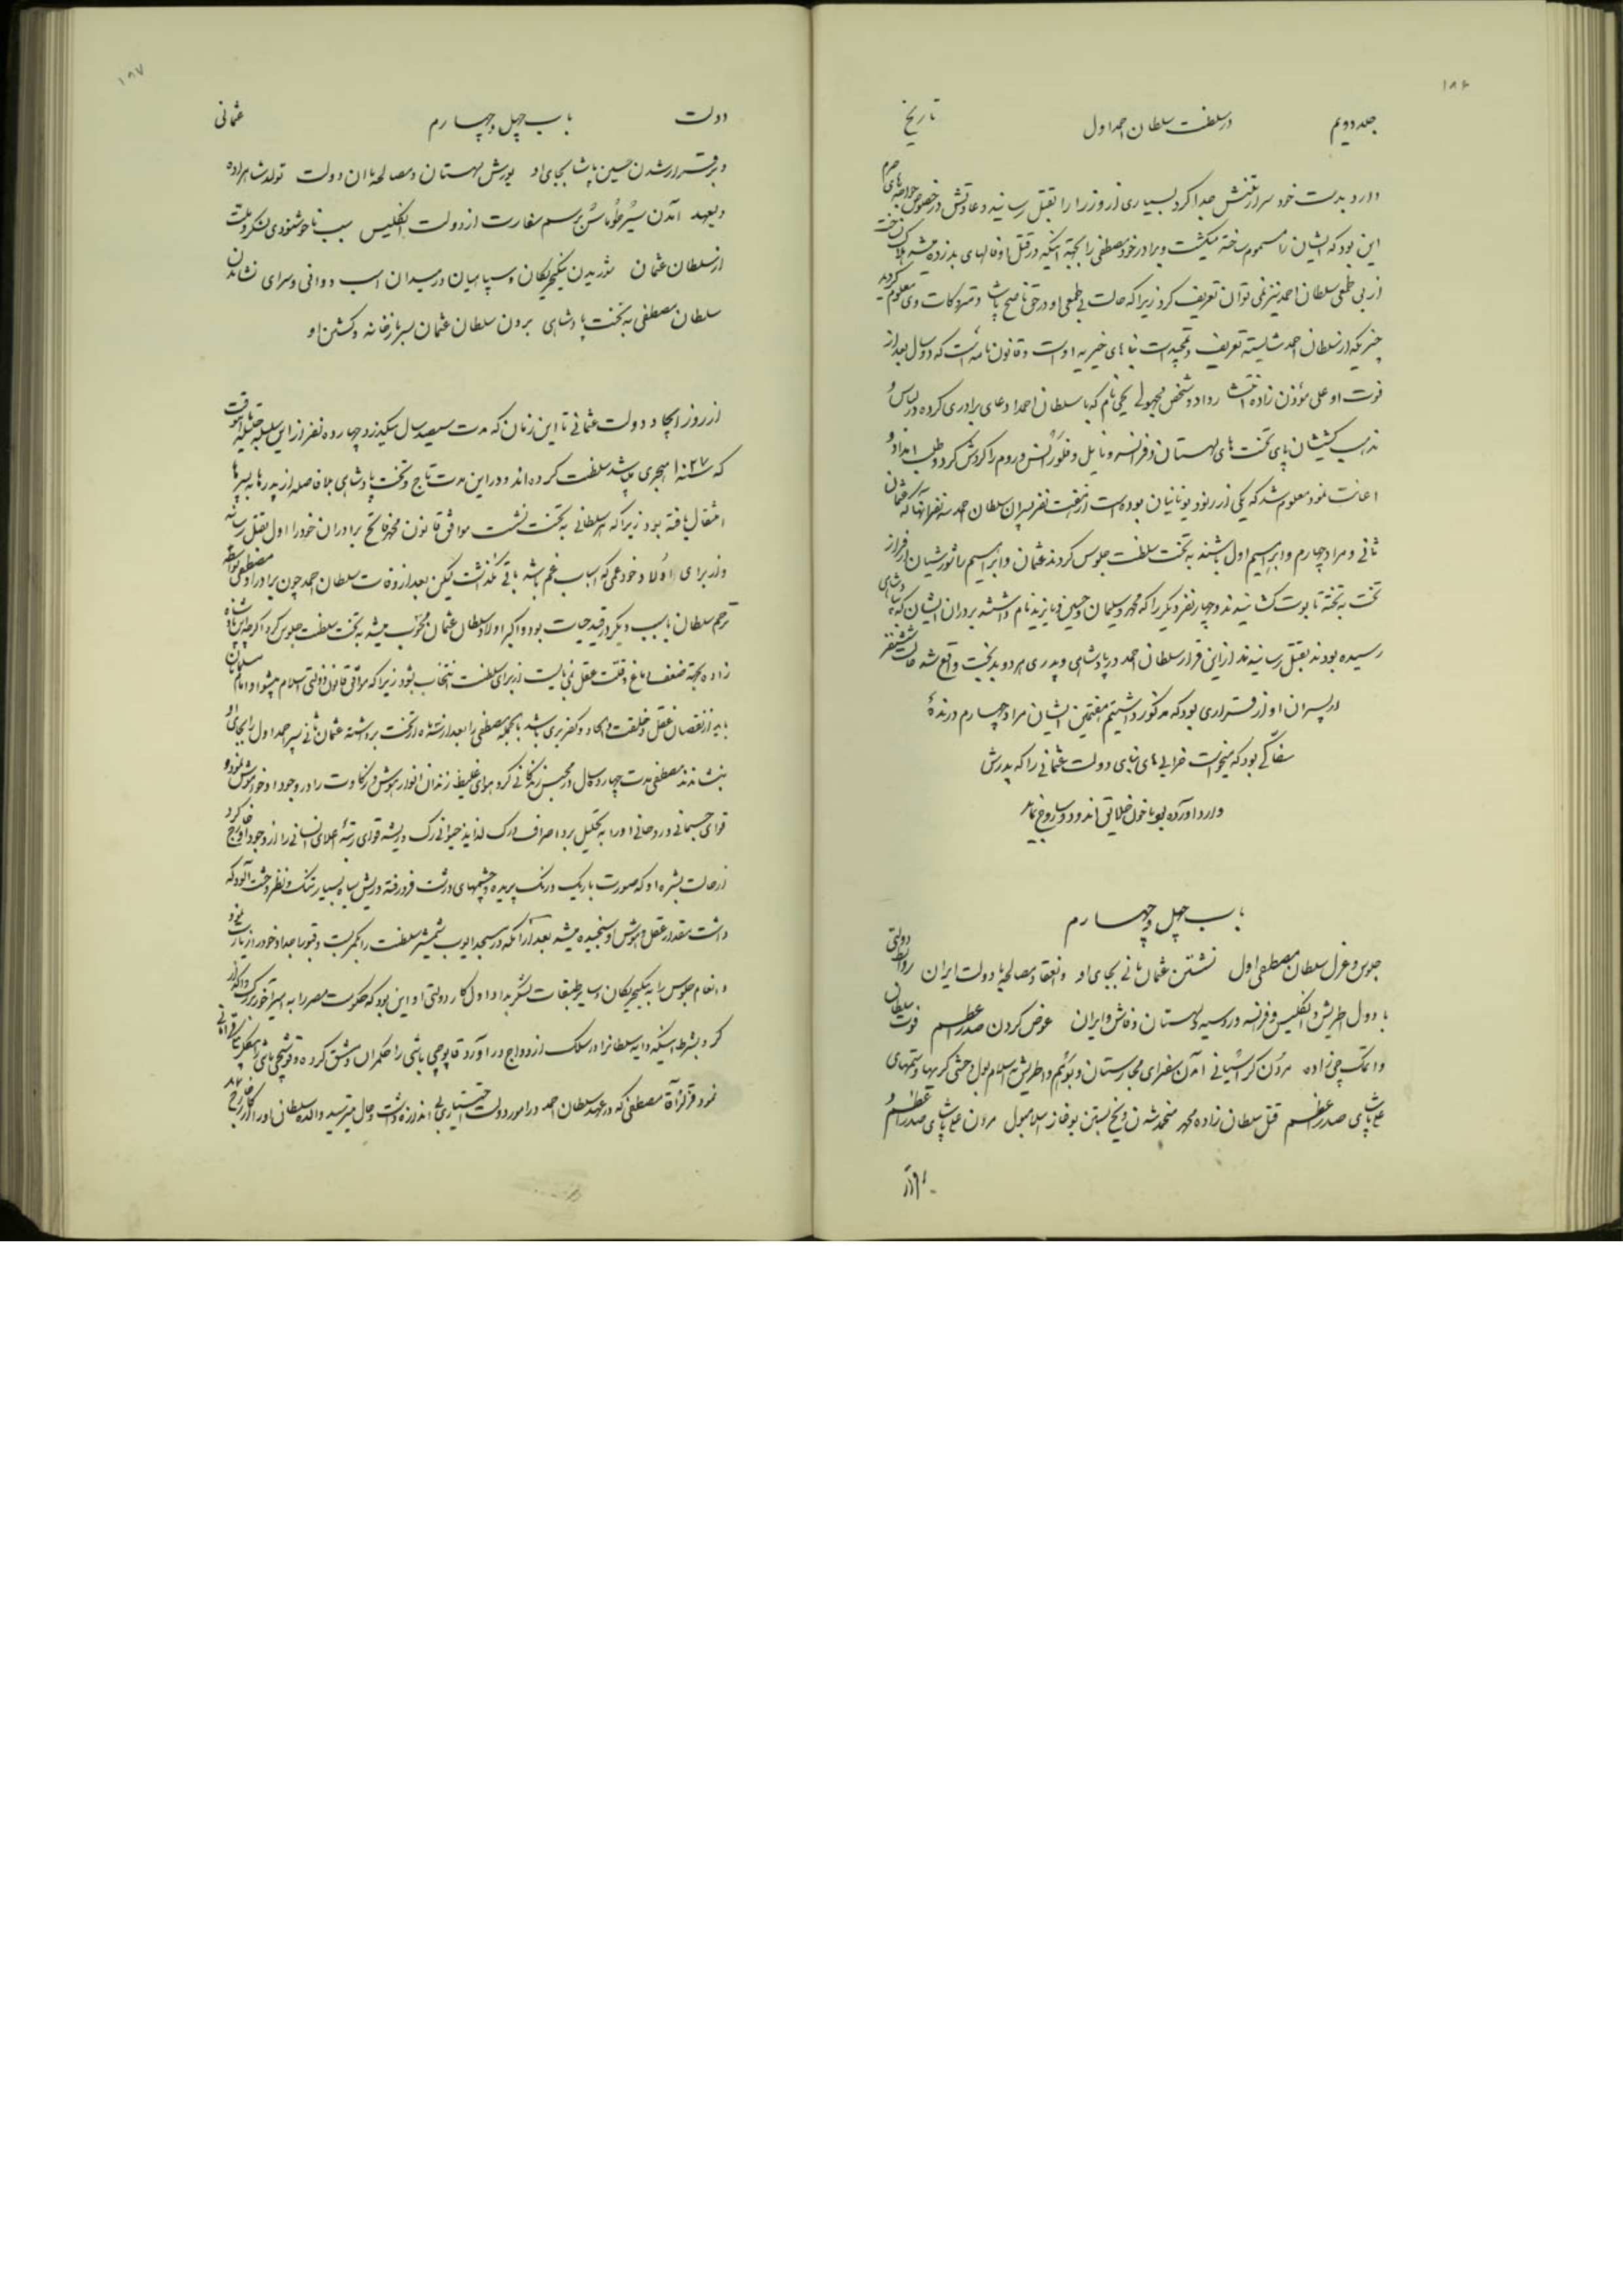 ۱۸۶
جلد دویم در سلطنت سلطان احمد اول تاریخ
دارد بدست خود سر از تنش جدا کرد بسیاری از وزرا را بقتل رسانید و عادتش در خصوص خواجه‌های حرم
این بود که ایشان را مسموم ساخته میکشت و برادر خود مصطفی را بجهة اینکه در قتل او فالهای بد زده میشد هلاک نساخت
از بی طمعی سلطان احمد نیز نمی توان تعریف کرد زیرا که حالت بی طمعی او در حق ناصح پاشا و متروکات وی معلوم گردید
چیزیکه از سلطان احمد شایسته تعریف و تمجید است بناهای خیریه اوست و قانون نامه است که دو سال بعد از
فوت او علی مؤذن زاده انتشار داد و شخص مجهولی یحیی نام که با سلطان احمد ادعای برادری کرده در لباس و
مذهب کشیشان پای تخت های لهستان و فرانسه و ناپل و فلورانس و روم را گردش کرد و طلب امداد و
اعانت نمود معلوم شد که یکی از رنود یونانیان بوده است از هفت نفر پسران سلطان احمد سه نفر آنها که عثمان
ثانی و مراد چهارم و ابراهیم اول باشند به تخت سلطنت جلوس کردند عثمان و ابراهیم را شورشیان از فراز
تخت به تخته تابوت کشانیدند و چهار نفر دیگر را که محمد و سلیمان و حسین و بایزید نام داشتند برادران ایشان که بپادشاهی
رسیده بودند بقتل رسانیدند از این قرار سلطان احمد در پادشاهی و پدری هر دو بدبخت واقع شد حالت شش نفر
از پسران او از قراری بود که مذکور داشتیم هفتمین ایشان مراد چهارم درندهٔ
سفاکی بود که میخواست خرابی های بنای دولت عثمانی را که پدرش
وارد آورده بود با خون خلایق اندود و ساروج نماید
باب چهل و چهارم
جلوس و عزل سلطان مصطفی اول نشستن عثمان ثانی بجای او و انعقاد مصالحه با دولت ایران روابط دولتی
با دول اطریش و انگلیس و فرانسه و روسیه و لهستان و ایران عوض کردن صدر اعظم فوت سلطان
زاده مردن آمدن سفرای مجارستان و بوهیم و اطریش به اسلامبول و حشی گریها و ستمهای
علی پاشای صدر اعظم قتل سلطان زاده محمد منجمد شدن و یخ بستن بوغاز اسلامبول مردن علی پاشای صدر اعظم و
۱۸۷
دولت باب چهل و چهارم عثمانی
و برقرار شدن حسین پاشا بجای او یورش لهستان و مصالحه با آن دولت تولد شاهزاده
ولیعهد آمدن سیر طوماس برسم سفارت از دولت انگلیس سبب ناخوشنودی لشکر و ملت
از سلطان عثمان شوریدن ینگیچریکان و سپاهیان در میدان اسب دوانی و سرای نشاندن
سلطان مصطفی به تخت پادشاهی بردن سلطان عثمان بسربازخانه و کشتن او
از روز ایجاد دولت عثمانی تا این زمان که مدت سیصد سال میگذرد چهارده نفر از این سلسله جلیله تا وقت
که سنه ۱۰۲۷ هجری باشد سلطنت کرده اند و در این مدت تاج و تخت پادشاهی بلا فاصله از پدرها به پسرها
انتقال یافته بود زیرا که هر سلطانی به تخت نشست موافق قانون محمد فاتح برادران خود را اول بقتل رساند
و از برای اولاد خود عمی که اسباب غم باشد باقی نگذاشت لیکن بعد از وفات سلطان احمد چون برادر او مصطفی بواسطه
ترحم سلطان یا سبب دیگر در قید حیات بود و اکبر اولاد سلطان عثمان محسوب میشد به تخت سلطنت جلوس کرد اگر چه این شاه
زاده بجهة ضعف دماغ و قلت عقل نمی بایست از برای سلطنت انتخاب شود زیرا که موافق قانون دولتی اسلام پیشوا و امام مسلمانان
باید از نقصان عقل و خلقت و الحاد و کفر بری باشد بالجمله مصطفی را بعد از سه ماه از تخت برداشته عثمان ثانی پسر احمد اول را بجای او
بنشاندند مصطفی مدت چهارده سال در محبس زندگانی کرد هوای غلیظ زندان انوار هوش و ذکاوت را در وجود او خاموش نمود و
قوای جسمانی و روحانی او را به تحلیل برد اصراف درک لذاید حیوانی رگ و ریشه قوای رتبهٔ اعلای انسانی را از وجود او خارج کرد
از حالت بشره او که صورت باریک و رنگ پریده و چشمهای درشت فرو رفته و ریش سیاه بسیار تنک و نظر وحشت آلود که
داشت مقدار عقل و هوش او سنجیده میشد بعد از آنکه در مسجد ایوب شمشیر سلطنت را بکمر بست و قبور اجداد خود را زیارت نمود
و انعام جلوس را به ینگیچریکان و سایر طبقات لشکر بداد اول کار دولتی او این بود که حکومت مصر را به میرآخور بزرگ واگذار
کرد بشرط اینکه دایه سلطانرا در سلک ازدواج در آورد قاپوچی باشی را حکمران دمشق کرده
نمود قزلر آقا مصطفی که در عهد سلطان احمد در امور دولت اختیاری بی اندازه داشت و حال میترسید والده سلطان او را از کار خارج